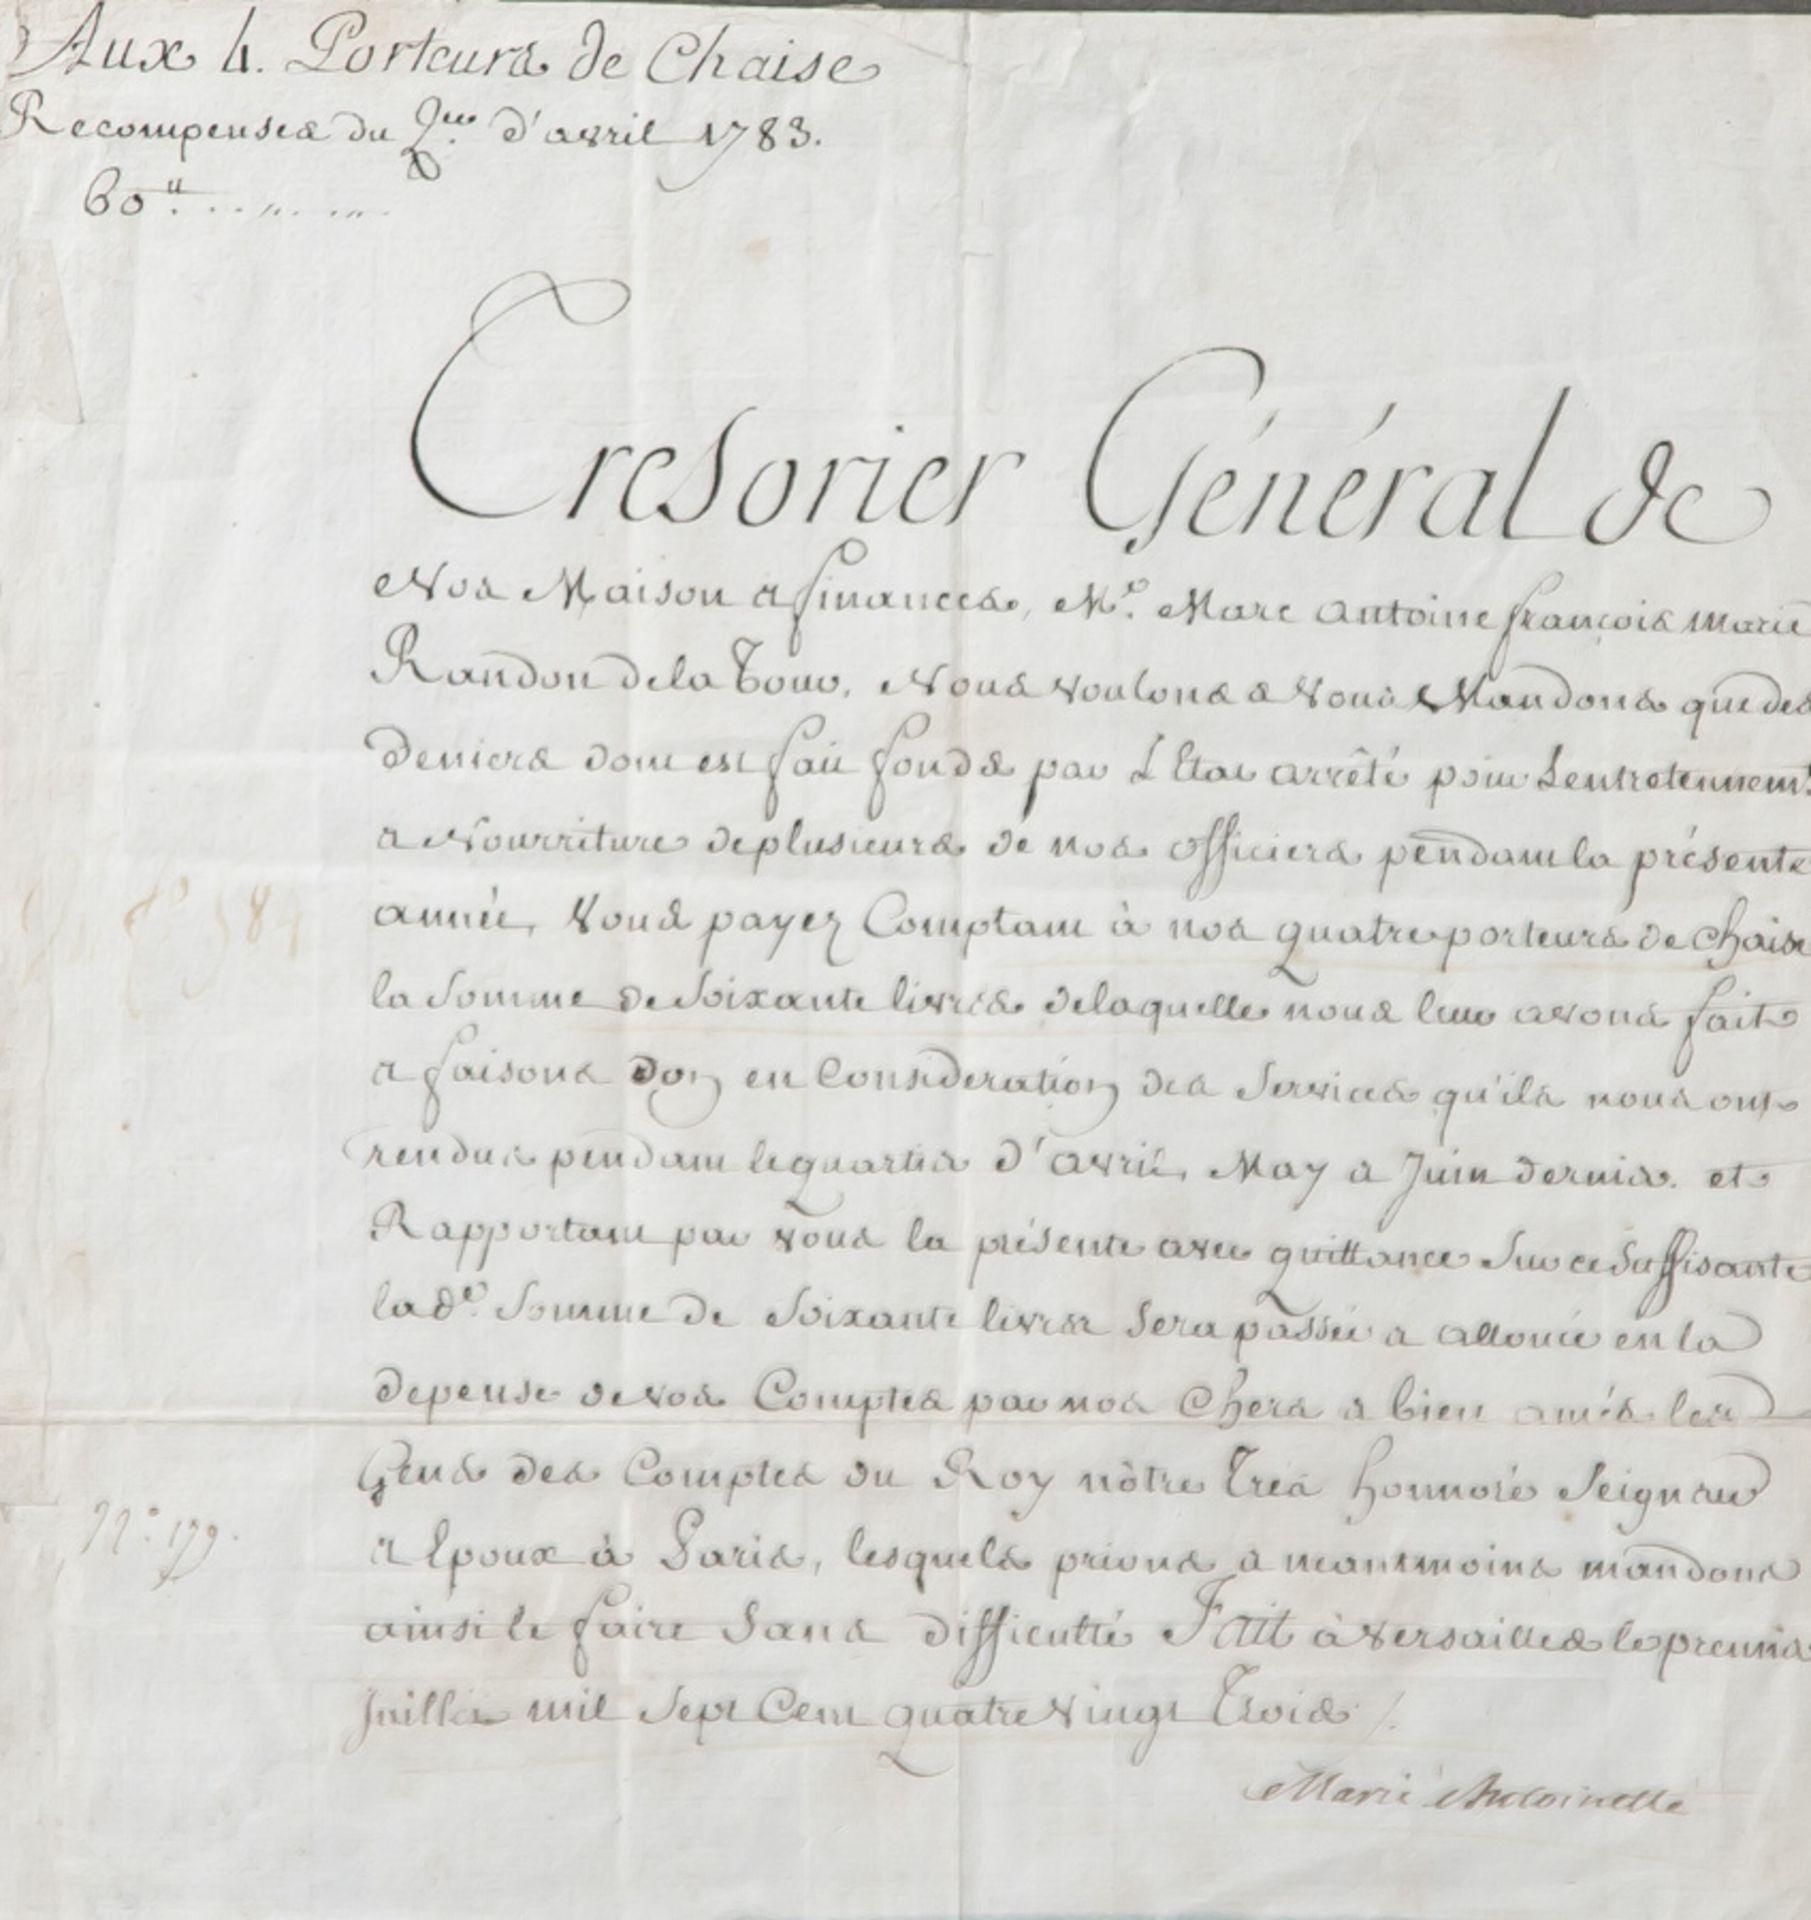 Aux 4. Porteurs de Chaise
Recompenses du Q.er d'avril 1783.
60.tt
Tresorier Général de
Nos Maison et finances, M.e Marc Antoine françois Marie
Randon de la Tour, Nous voulons et vous Mandons que des
deniers dont est fait fonds par L'Etat arrêté pour L'entretennem.t
et Nourriture de plusieurs de nos officiers pendant la présente
année, vous payez Comptant à nos quatre porteurs de Chaise
la Somme de Soixante livres de laquelle nous leur avons fait
et faisons don en Consideration des Services qu'ils nous ont
rendus pendant le quartier d'avril, May et Juin dernier. et
Rapportant par vous la présente avec quittance Sur ce Suffisante
lad.e Somme de Soixante livres Sera passée et allouée en la
depense de vos Comptes par nos Chers et bien amés les
Gens des Comptes du Roy nôtre très honnoré Seigneur
et Epoux à Paris, lesquels prions et néantmoins mandons
ainsi le faire Sans difficulté Fait à Versailles le premier
Juillet mil Sept Cent quatre vingt Trois ./.
N.o 179.
Marie Antoinette